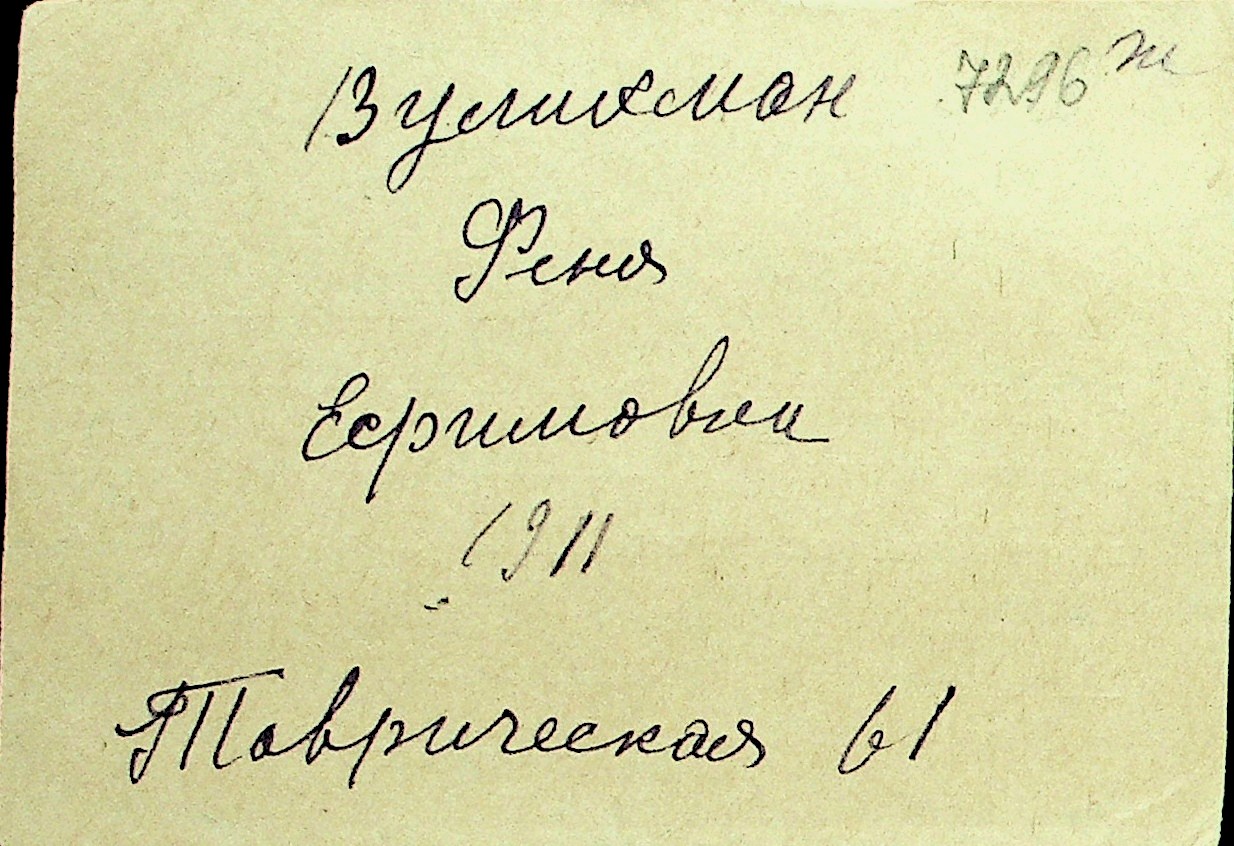 Вулихман 7296 ж
Феня
Ефимовна
1911
Таврическая 61